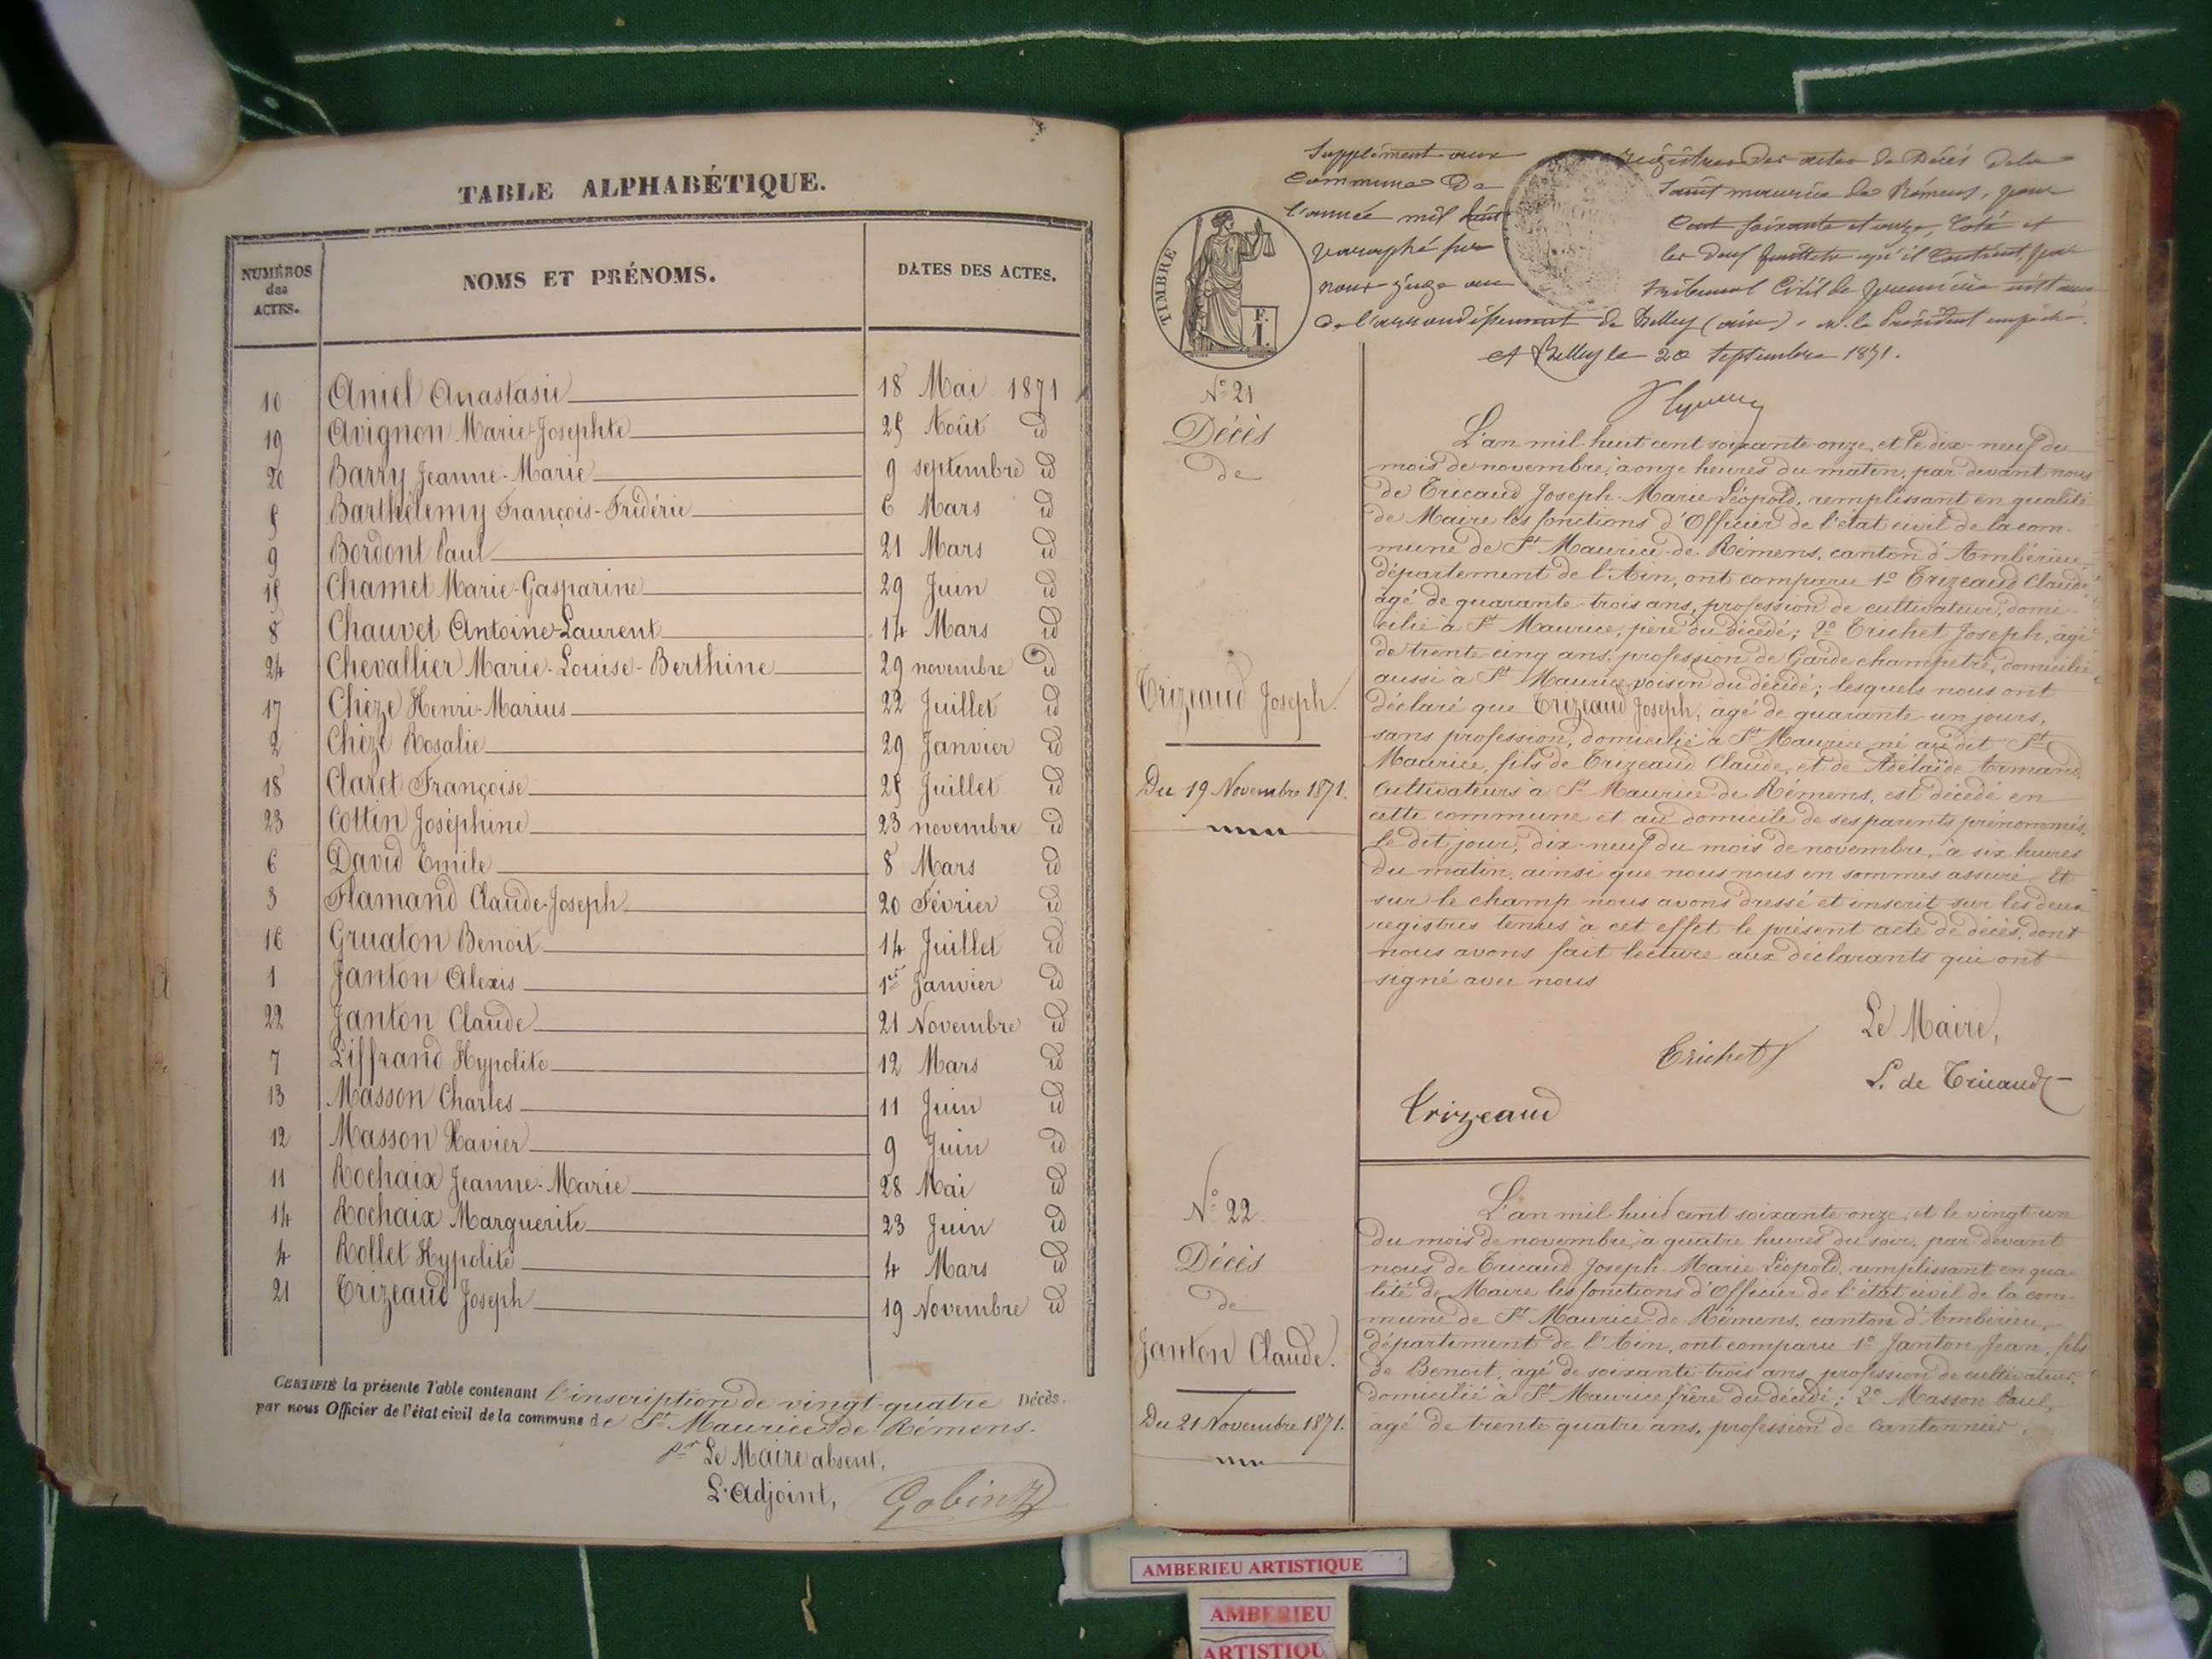 TABLE ALPHABÉTIQUE.
NUMÉROS des ACTES. NOMS ET PRÉNOMS. DATES DES ACTES.
10 Aniel Anastasie 18 Mai 1871
19 Avignon Marie-Josephte 25 Août id
20 Barry Jeanne-Marie 9 septembre id
5 Barthélemy François-Frédéric 6 Mars id
9 Bordont Paul 21 Mars id
15 Chamet Marie-Gasparine 29 Juin id
8 Chauvet Antoine-Laurent 14 Mars id
24 Chevallier Marie-Louise-Berthine 29 novembre id
17 Chèze Henri-Marius 22 Juillet id
2 Chèze Rosalie 29 Janvier id
18 Claret Françoise 25 Juillet id
23 Cottin Joséphine 23 novembre id
6 David Emile 8 Mars id
3 Flamand Claude-Joseph 20 Février id
16 Gruaton Benoit 14 Juillet id
1 Janton Alexis 1er Janvier id
22 Janton Claude 21 Novembre id
7 Liffrand Hypolite 12 Mars id
13 Masson Charles 11 Juin id
12 Masson Xavier 9 Juin id
11 Rochaix Jeanne-Marie 28 Mai id
14 Rochaix Marguerite 23 Juin id
4 Rollet Hypolite 4 Mars id
21 Trizeaud Joseph 19 Novembre id
CERTIFIÉ la présente Table contenant l'inscription de vingt-quatre Décès.
par nous Officier de l'état civil de la commune de St Maurice de Rémens.
pr Le Maire absent,
L'Adjoint, Gobin
Supplément aux registres des actes de Décès de la
commune de Saint maurice de Rémens, pour
l'année mil huit cent soixante et onze, coté et
paraphé sur les deux feuillets qu'il contient, par
nous juge au tribunal civil de première instance
de l'arrondissement de Belley (ain). M. le Président empêché.
A Belley le 20 septembre 1871.
TIMBRE
F.
I.
N° 21
Décès
de
Trizeaud Joseph.
Du 19 Novembre 1871.
L'an mil huit cent soixante onze, et le dix-neuf du
mois de novembre, à onze heures du matin, par devant nous
de Tricaud Joseph-Marie Léopold, remplissant en qualité
de Maire les fonctions d'Officier de l'état civil de la com-
mune de St Maurice-de-Rémens, canton d'Ambérieu,
département de l'Ain, ont comparu 1° Trizeaud Claude,
agé de quarante trois ans, profession de cultivateur, domi-
cilié à St Maurice, père du décédé; 2° Trichet Joseph, agé
de trente cinq ans, profession de Garde champêtre, domicilié
aussi à St Maurice, voisin du décédé; lesquels nous ont
déclaré que Trizeaud Joseph, agé de quarante-un jours,
sans profession, domicilié à St Maurice né au dit St
Maurice, fils de Trizeaud Claude, et de Adélaïde Armand,
cultivateurs à St Maurice-de Rémens, est décédé en
cette commune et au domicile de ses parents prénommés,
le dit jour, dix-neuf du mois de novembre, à six heures
du matin, ainsi que nous nous en sommes assuré. Et
sur le champ nous avons dressé et inscrit sur les deux
registres tenus à cet effet le présent acte de décès, dont
nous avons fait lecture aux déclarants qui ont
signé avec nous
Le Maire,
Trichet
L. de Tricaud
Trizeaud
N° 22
Décès
de
Janton Claude.
Du 21 Novembre 1871.
L'an mil huit cent soixante-onze, et le vingt-un
du mois de novembre, à quatre heures du soir, par-devant
nous de Tricaud Joseph-Marie Léopold, remplissant en qua-
lité de Maire les fonctions d'Officier de l'état civil de la com-
mune de St Maurice-de-Rémens, canton d'Ambérieu,
département de l'Ain, ont comparu 1° Janton Jean, fils
de Benoit, agé de soixante-trois ans, profession de cultivateur,
domicilié à St Maurice frère du décédé; 2° Masson Paul,
agé de trente quatre ans, profession de cantonnier,
AMBERIEU ARTISTIQUE
AMBERIEU
ARTISTIQU